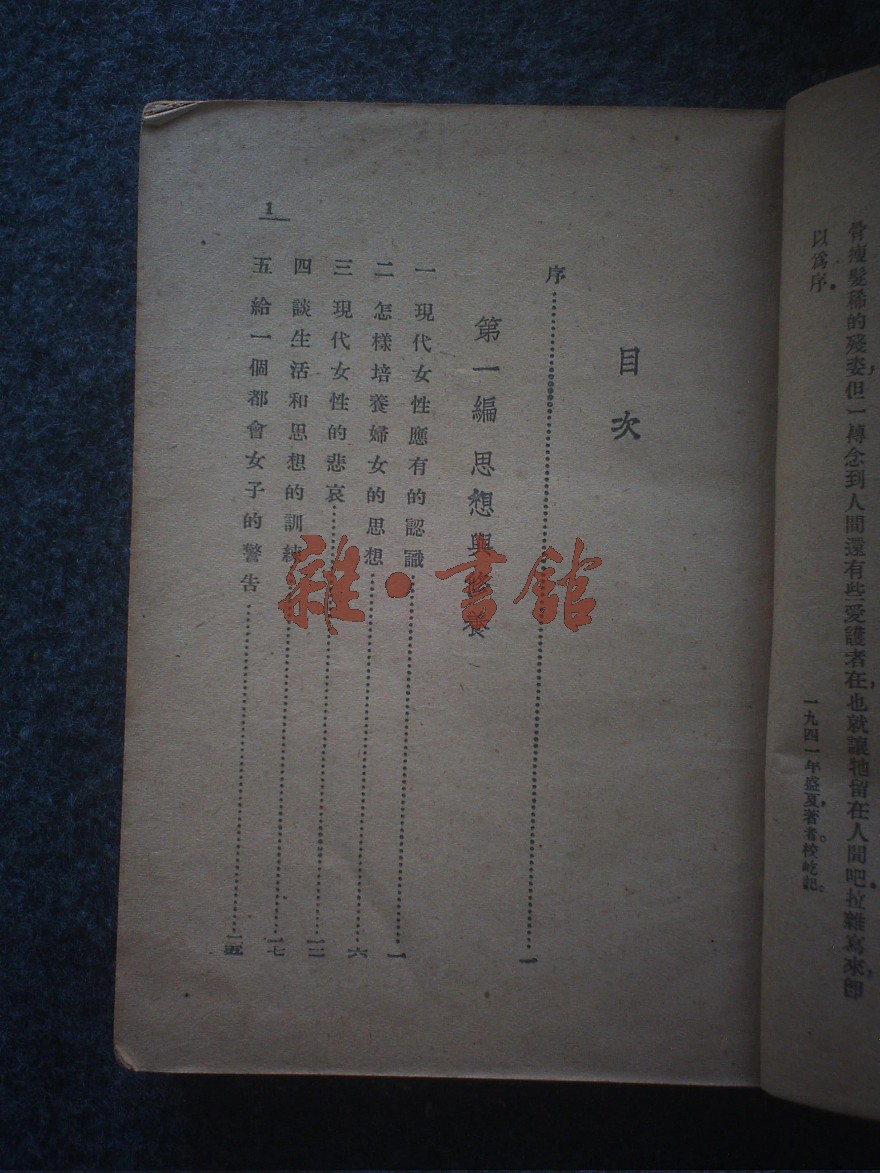 骨瘦髮稀的殘姿，但一轉念到人間還有些愛護者在，也就讓牠留在人間吧。拉雜寫來，卽
以爲序。
一九四一年盛夏，著者校訖記。
目次
序……一
第一編 思想與修養
一 現代女性應有的認識……一
二 怎樣培養婦女的思想……六
三 現代女性的悲哀……一二
四 談生活和思想的訓練……一七
五 給一個都會女子的警告……
1
雜·書館